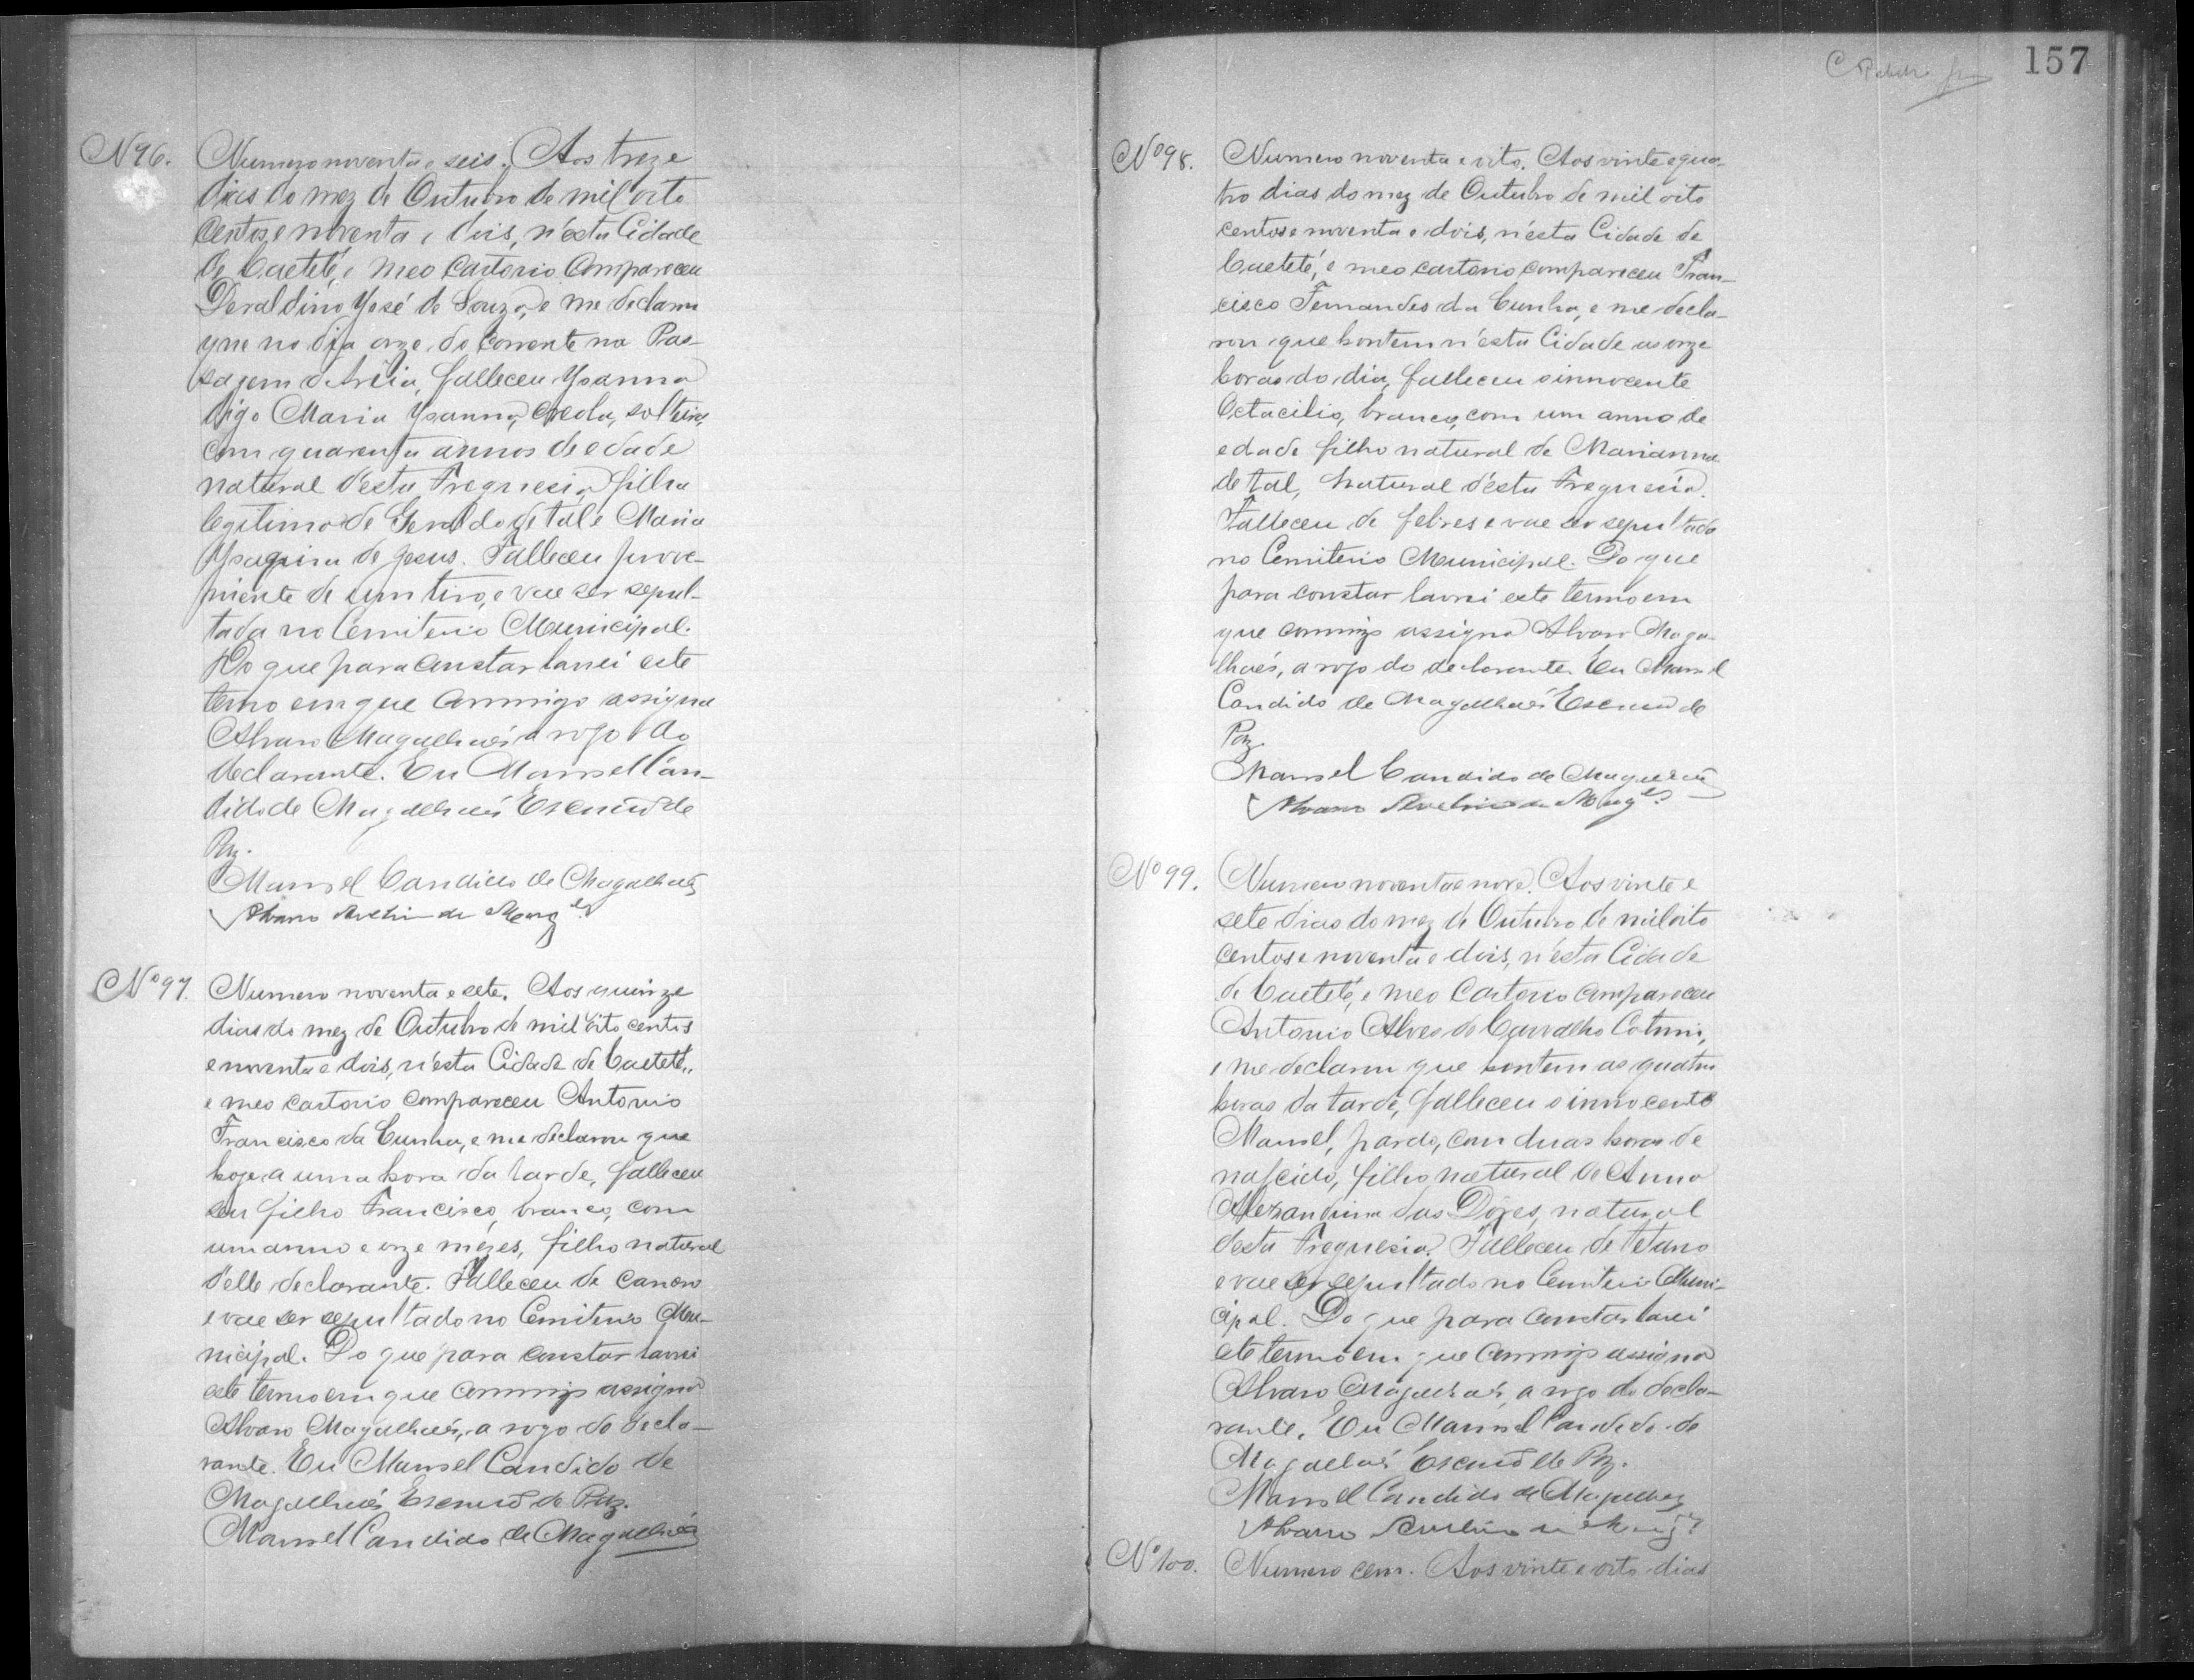 Nº 96. Numero noventa e seis. Aos treze
dias do mez de Outubro de mil oito
centos e noventa e dois, n'esta Cidade
de Caeteté, e meo Cartorio Compareceu
Deraldino José de Souza, e me declarou
que no dia onze do Corrente na Pas-
sagem d'Areia, falleceu Joanna
digo Maria Joanna, creola, solteira,
com quarenta annos de edade
natural d'esta Freguesia, filha
legitima de Geraldo de tal e Maria
Joaquina de Jesus. Falleceu prove-
niente de um tiro, e vae ser sepul-
tada no Cemiterio Municipal.
Do que para constar lavrei este
termo em que commigo assigna
Alvaro Magalhaẽs a rogo do
declarante. Eu Manoel Can-
dido de Magalhaẽs Escrivão de
Paz.
Manoel Candido de Magalhaẽs
Alvaro Avelino de Magẽs
Nº 97. Numero noventa e sete. Aos quinze
dias do mez de Outubro de mil oito centos
e noventa e dois, n'esta Cidade de Caeteté,
e meo cartorio compareceu Antonio
Francisco da Cunha, e me declarou que
hoje a uma hora da tarde, falleceu
seu filho Francisco, branco, com
um anno e onze mezes, filho natural
d'elle declarante. Falleceu de cancro
e vae ser sepultado no Cemiterio Mu-
nicipal. Do que para constar lavrei
este termo em que commigo assigna
Alvaro Magalhaẽs, a rogo do decla-
rante. Eu Manoel Candido de
Magalhaẽs Escrivão de Paz.
Manoel Candido de Magalhaẽs
157
Nº 98. Numero noventa e oito. Aos vinte e qua-
tro dias do mez de Outubro de mil oito
centos e noventa e dois, n'esta Cidade de
Caeteté, e meo cartorio compareceu Fran-
cisco Fernandes da Cunha, e me decla-
rou que hontem n'esta Cidade as onze
horas do dia, falleceu o innocente
Octacilio, branco, com um anno de
edade filho natural de Marianna
de tal, natural d'esta Freguesia.
Falleceu de febres e vae ser sepultado
no Cemiterio Municipal. Do que
para constar lavrei este termo em
que commigo assigna Alvaro Maga-
lhaẽs, a rogo do declarante. Eu Manoel
Candido de Magalhaẽs Escrivão de
Paz.
Manoel Candido de Magalhaẽs
Alvaro Avelino de Magẽs
Nº 99. Numero noventa e nove. Aos vinte e
sete dias do mez de Outubro de mil oito
centos e noventa e dois, n'esta Cidade
de Caeteté, e meo Cartorio compareceu
Antonio Alves de Carvalho Cotrim,
e me declarou que hontem as quatro
horas da tarde, falleceu o innocente
Manoel, pardo, com duas horas de
nascido, filho natural de Anna
Alexandrina das Dores, natural
desta Freguesia. Falleceu de tetano
e vae ser sepultado no Cemiterio Muni-
cipal. Do que para constar lavrei
este termo em que commigo assigna
Alvaro Magalhaẽs, a rogo do decla-
rante. Eu Manoel Candido de
Magalhaẽs Escrivão de Paz.
Manoel Candido de Magalhaẽs
Alvaro Avelino de Magẽs
Nº 100. Numero cem. Aos vinte e oito dias